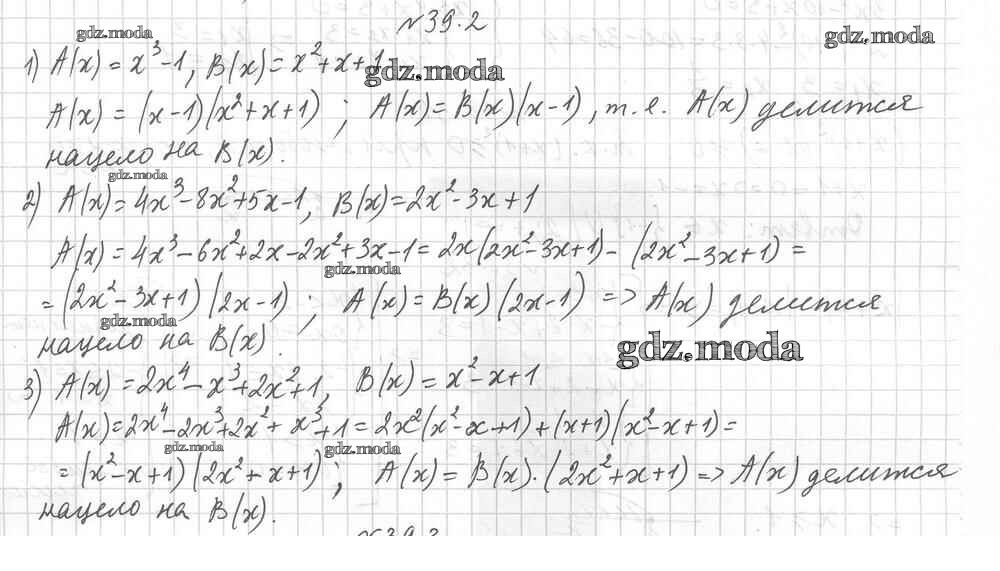 №39.2
gdz.moda
gdz.moda
1) A(x) = x³-1, B(x) = x²+x+1
gdz.moda
A(x) = (x-1)(x²+x+1) ; A(x) = B(x)(x-1), т.е. A(x) делится
нацело на B(x).
gdz.moda
2) A(x) = 4x³-8x²+5x-1, B(x) = 2x²-3x+1
A(x) = 4x³-6x²+2x-2x²+3x-1 = 2x(2x²-3x+1) - (2x²-3x+1) =
gdz.moda
= (2x²-3x+1)(2x-1) ; A(x) = B(x)(2x-1) => A(x) делится
gdz.moda
нацело на B(x).
gdz.moda
3) A(x) = 2x⁴-x³+2x²+1, B(x) = x²-x+1
A(x) = 2x⁴-2x³+2x²+x³+1 = 2x²(x²-x+1)+(x+1)(x²-x+1) =
gdz.moda
gdz.moda
= (x²-x+1)(2x²+x+1) ; A(x) = B(x)·(2x²+x+1) => A(x) делится
нацело на B(x).